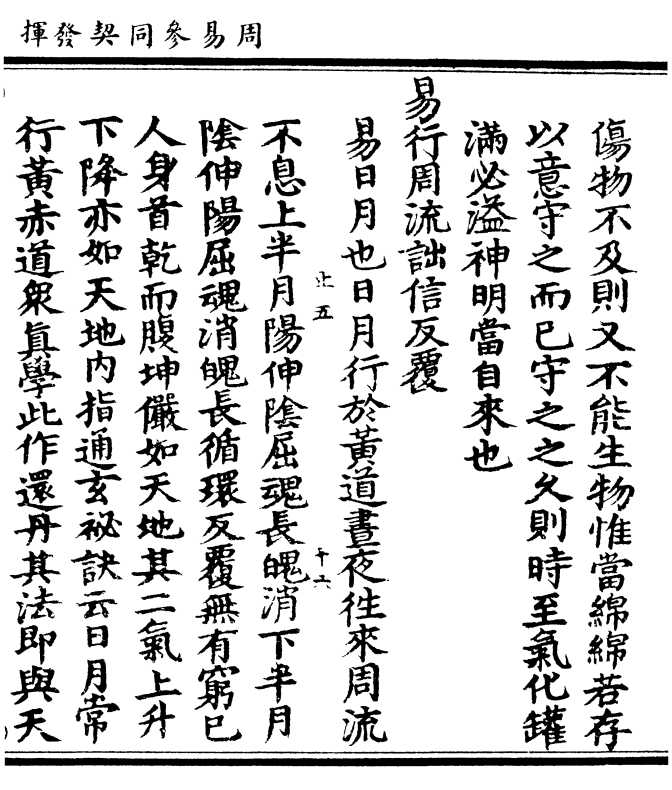 周易參同契發揮
傷物不及則又不能生物惟當綿綿若存
以意守之而已守之之久則時至氣化罐
滿必溢神明當自來也
易行周流詘信反覆
易日月也日月行於黃道晝夜往來周流
止五
十六
不息上半月陽伸陰屈魂長魄消下半月
陰伸陽屈魂消魄長循環反覆無有窮已
人身首乾而腹坤儼如天地其二氣上升
下降亦如天地內指通玄祕訣云日月常
行黃赤道衆眞學此作還丹其法即與天